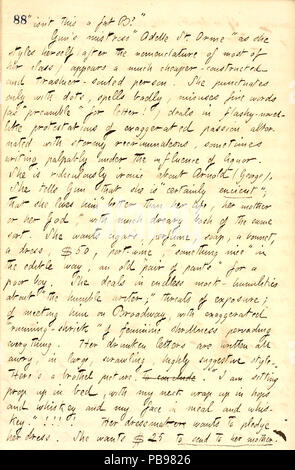 88
"isnt this a fat B?"
Gun's mistress "Odelle St. Orme" as she
styles herself after the nomenclature of most of
her class, appears a much cheaper-constructed
and trashier-souled person. She punctuates
only with dots, spells badly, misuses fine words
(as "preamble" for letter.) deals in flashy-novel-
like protestations of exaggerated passion alter-
nated with stormy recriminations, sometimes
writing palpably under the influence of liquor.
She is ridiculously ironic about Arnold (Gun).
She tells Gun that she is "certainly encient",
that she loves him "better than her life, her mother
or her God", with much dreary trash of the same
sort. She wants cigars, perfume, soap, a bonnet,
a dress, $50, port-wine, "something nice" in
the edible way, an old pair of pants "for a
poor boy. She deals in endless mock-humilities
about "the humble writer;" threats of exposure;
of meeting him on Broadway, with exaggerated
"running-shriek" of feminine shrillness pervading
everything. Her drunken letters are written all
awry, in large, scrawling, highly suggestive style.
Here's a brothel picture. To conclude. I am sitting
prop up in bed, with my neck wrap up in hops
and whiskey and my face in meal and whis-
key."!!!! Her dressmaker wants to pledge
her dress. She wants $25 to send to her mother.
alamy
PB9826